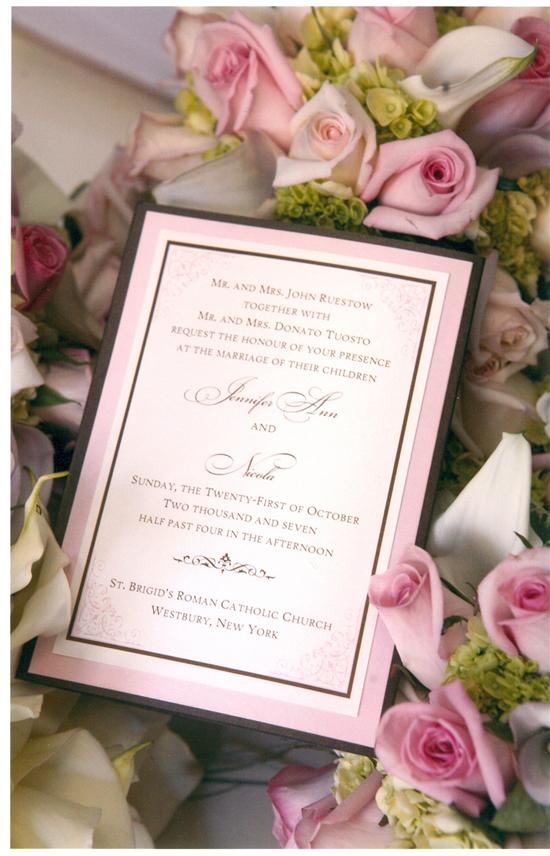 Mr. and Mrs. John Ruestow
together with
Mr. and Mrs. Donato Tuosto
request the honour of your presence
at the marriage of their children
Jennifer Ann
and
Nicola
Sunday, the Twenty-First of October
Two thousand and seven
half past four in the afternoon
St. Brigid's Roman Catholic Church
Westbury, New York